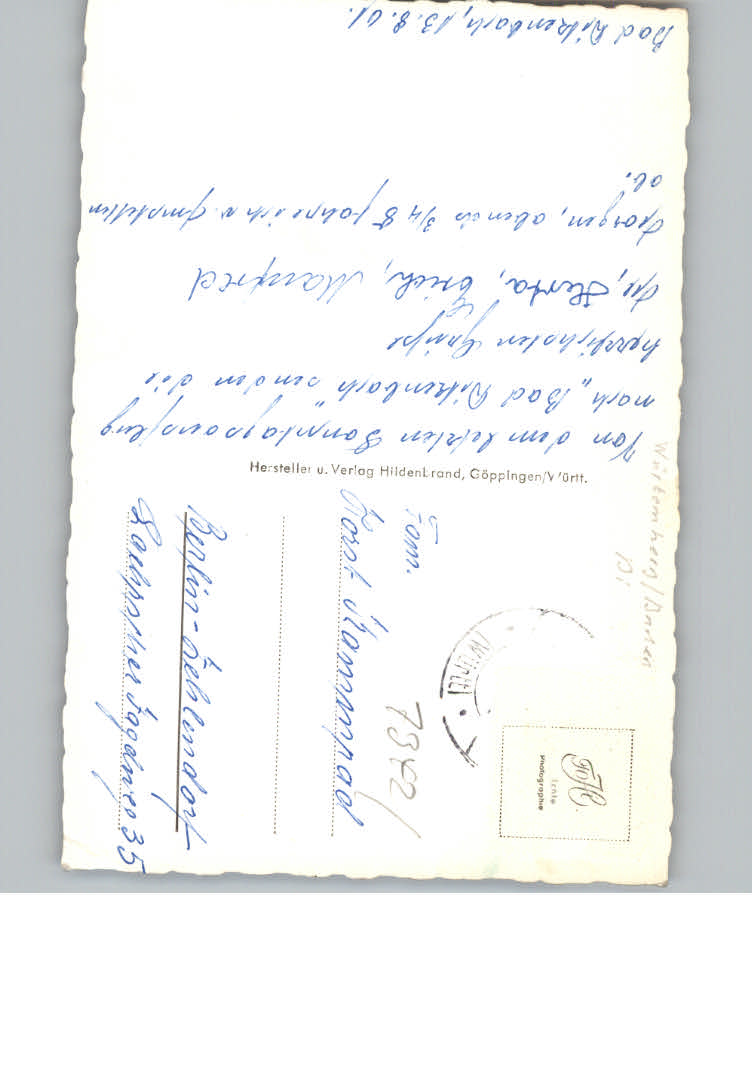 Bad Ditzenbach, 13.8.61.
Von dem letzten Sonntagsausflug
nach „Bad Ditzenbach" senden die
herzlichsten Grüße
Herta, Erich, Manfred
Morgen, abends 3/4 8 fahre ich v. Amstetten
ab.
Hersteller u. Verlag Hildenbrand, Göppingen/Württ.
Fam.
Horst Kamprad
Berlin-Zehlendorf
Jagdweg 35
(Württ)
Echte
Photographie
Württemberg/Baden
7342